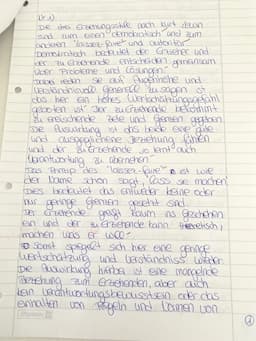 Nr. 1)
Die drei Erziehungsstile nach Kurt Lewin
sind zum einen "demokratisch" und zum
anderen "laissez-faire" und autoritär
Demokratisch bedeutet der Erzieher und
der zu Erziehende entscheiden gemeinsam
über Probleme und Lösungen.
Dabei reden sie auf
verständnisvolle Generelle zu sagen ist
das hier ein hohes Wertschätzungsgefühl
geboten ist. Der zu Erziehende bekommt
zu erreichende Ziele und Grenzen gegeben
Die Auswirkung ist das beide eine gute
und ausgeglichene Beziehung führen
und der zu Erziehende lernt auch
Verantwortung zu übernehmen
Das Prinzip des "laissez-faire" ist wie
der Name schon sagt, lass sie machen
Dies bedeutet das entweder keine oder
nur geringe Grenzen gesetzt sind.
Der Erziehende greift kaum ins geschehen
ein und der zu Erziehende kann theoretisch,
machen was er will
Somit spiegelt sich hier eine geringe
Wertschätzung und Verständnis wieder.
Die Auswirkung hierbei ist eine mangelnde
Beziehung zum Erziehenden, aber auch
kein Verantwortungsbewusstsein oder das
einhalten von Regeln und können von